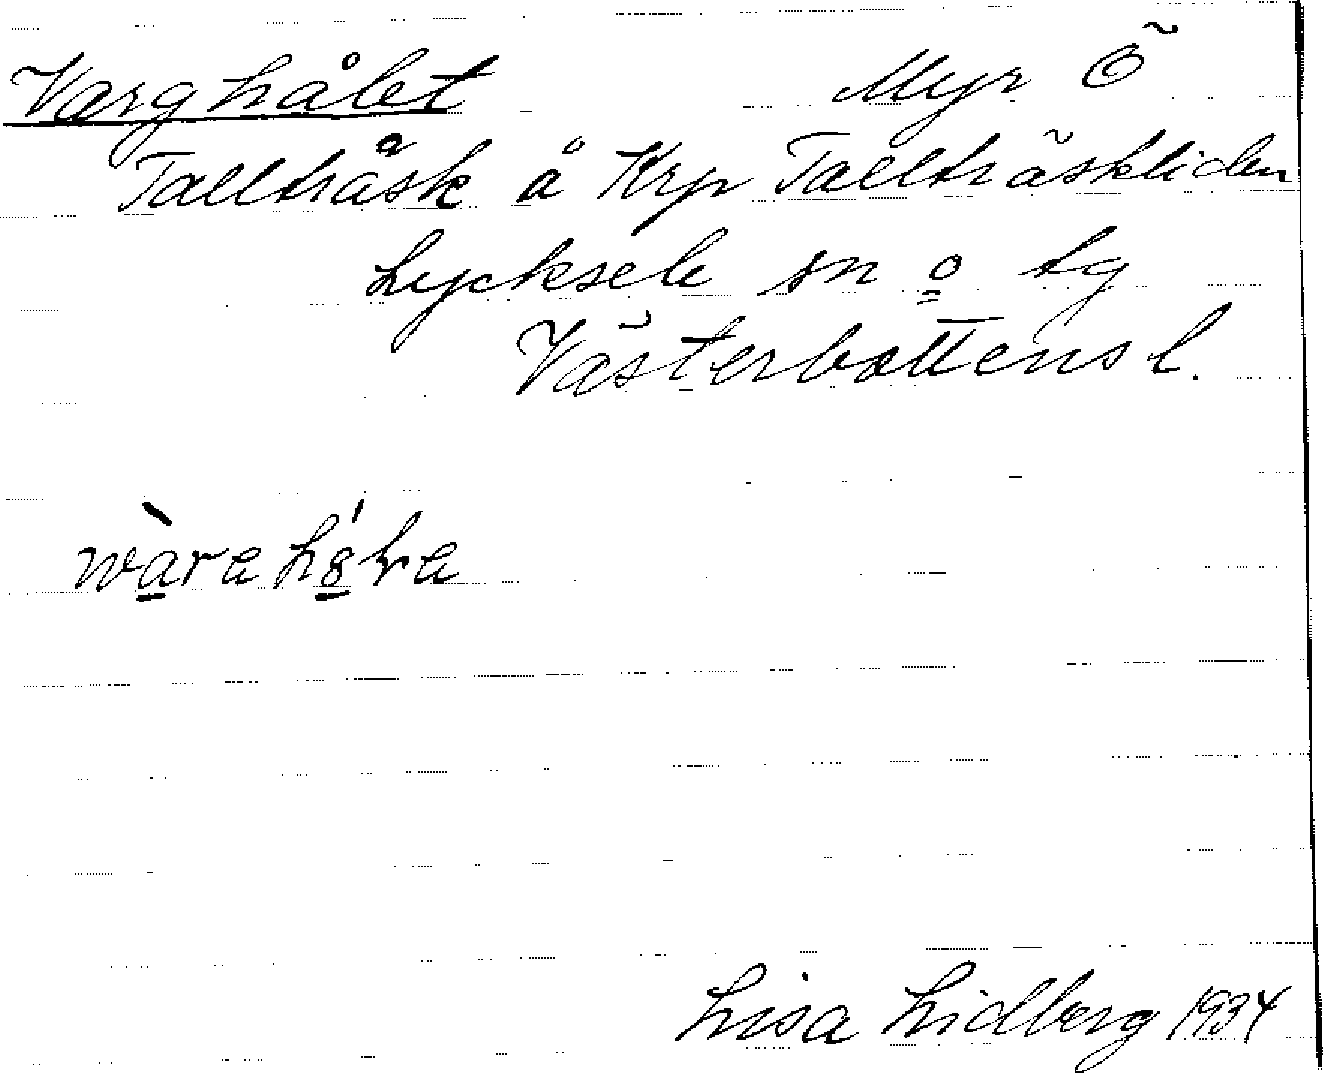 Varghålet Myr Ö
Tallträsk å Krp Tallträskliden
Lycksele sn o tg
Västerbottens l.
Lisa Lidberg 1934